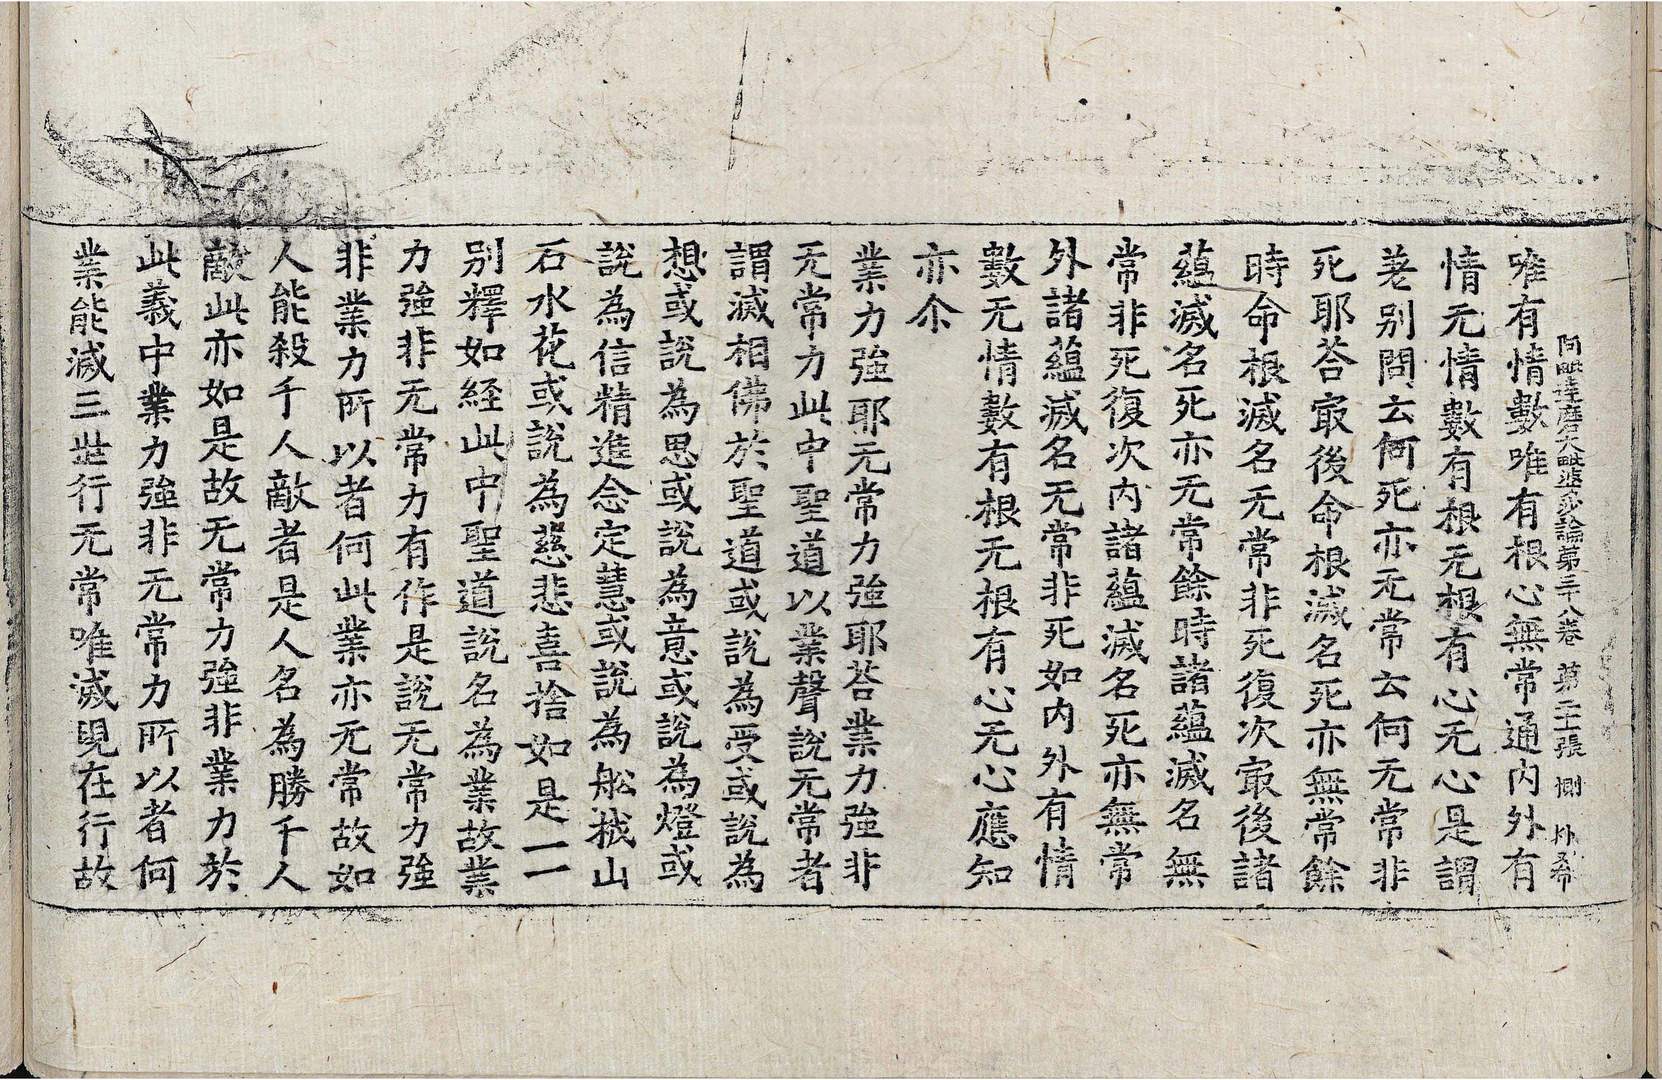 阿毗達磨大毗婆沙論第三十八卷 第二十張 惻
唯有情數唯有根心無常通內外有
情无情數有根无根有心无心是謂
差別問云何死亦无常云何无常非
死耶荅冣後命根滅名死亦無常餘
時命根滅名无常非死復次冣後諸
蘊滅名死亦无常餘時諸蘊滅名無
常非死復次內諸蘊滅名死亦無常
外諸蘊滅名无常非死如內外有情
數无情數有根无根有心无心應知
亦尒
業力強耶无常力強耶荅業力強非
无常力此中聖道以業聲說无常者
謂滅相佛於聖道或說為受或說為
想或說為思或說為意或說為燈或
說為信精進念定慧或說為舩栰山
石水花或說為慈悲喜捨如是一一
別釋如経此中聖道說名為業故業
力強非无常力有作是說无常力強
非業力所以者何此業亦无常故如
人能殺千人敵者是人名為勝千人
敵此亦如是故无常力強非業力於
此義中業力強非无常力所以者何
業能滅三世行无常唯滅現在行故